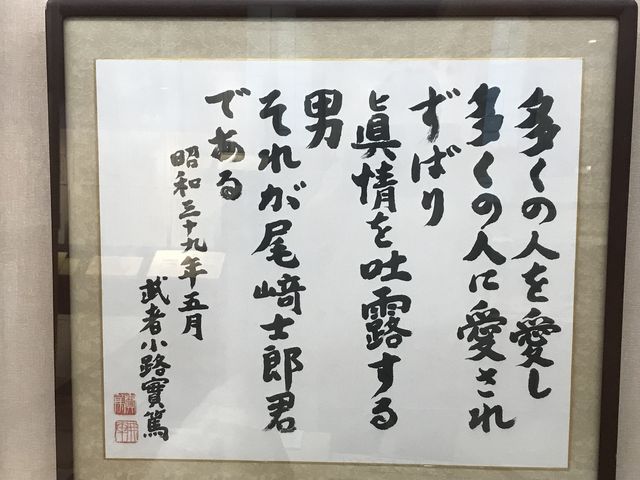 多くの人を愛し
多くの人に愛され
ずばり
と眞情を吐露する
男
それが尾﨑士郎君
である
昭和三十九年五月
武者小路實篤